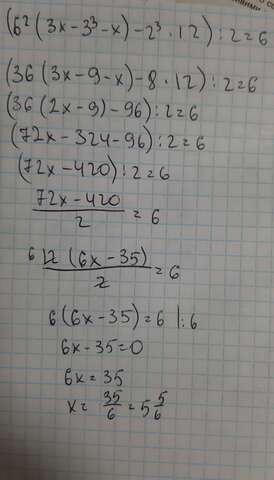 (6² (3x-3³-x)-2³·12):2=6
(36 (3x-9-x)-8·12):2=6
(36 (2x-9)-96):2=6
(72x-324-96):2=6
(72x-420):2=6
72x-420
2
=6
6 12 (6x-35)
2
=6
6(6x-35)=6 |:6
6x-35=0
6x=35
x= 35/6 = 5 5/6